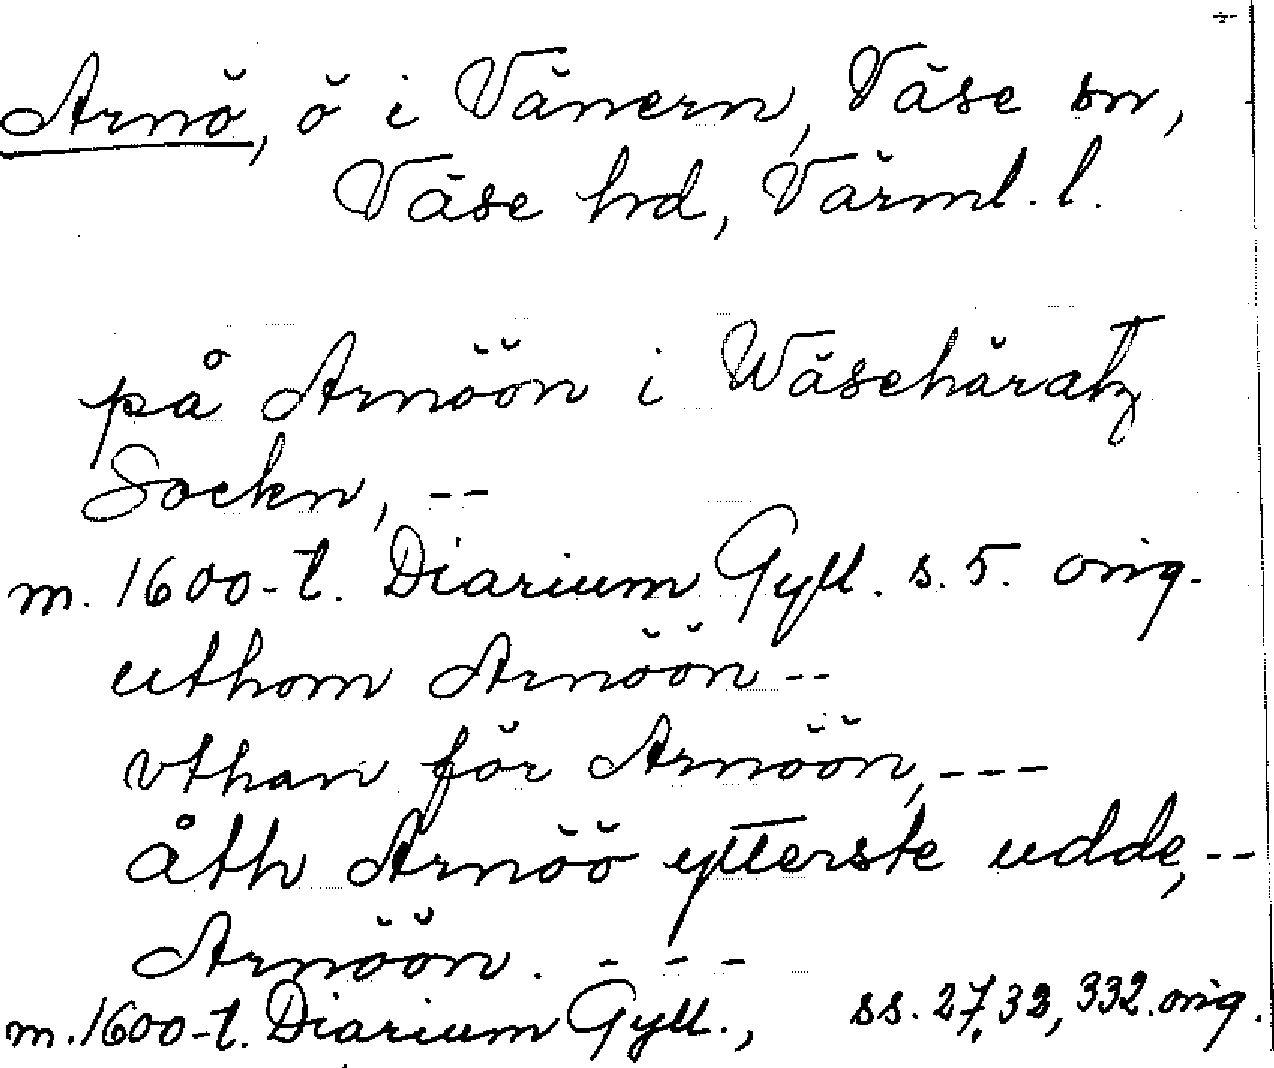 Arnö, ö i Vänern, Väse sn,
Väse hd, Värml. l.
på Arnöön i Wäsehäratz
Sockn, --
m. 1600-t. Diarium Gyll. s. 5. orig.
uthom Arnöön --
vthan för Arnöön, ---
åth Arnöö ytterste udde, --
Arnöön. - - -
m. 1600-t. Diarium Gyll., ss. 27, 33, 332. orig.